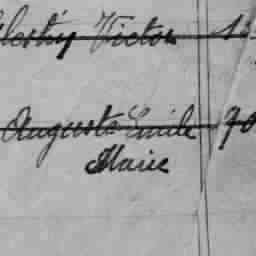 Victor 13
Auguste Emile 70
Marie